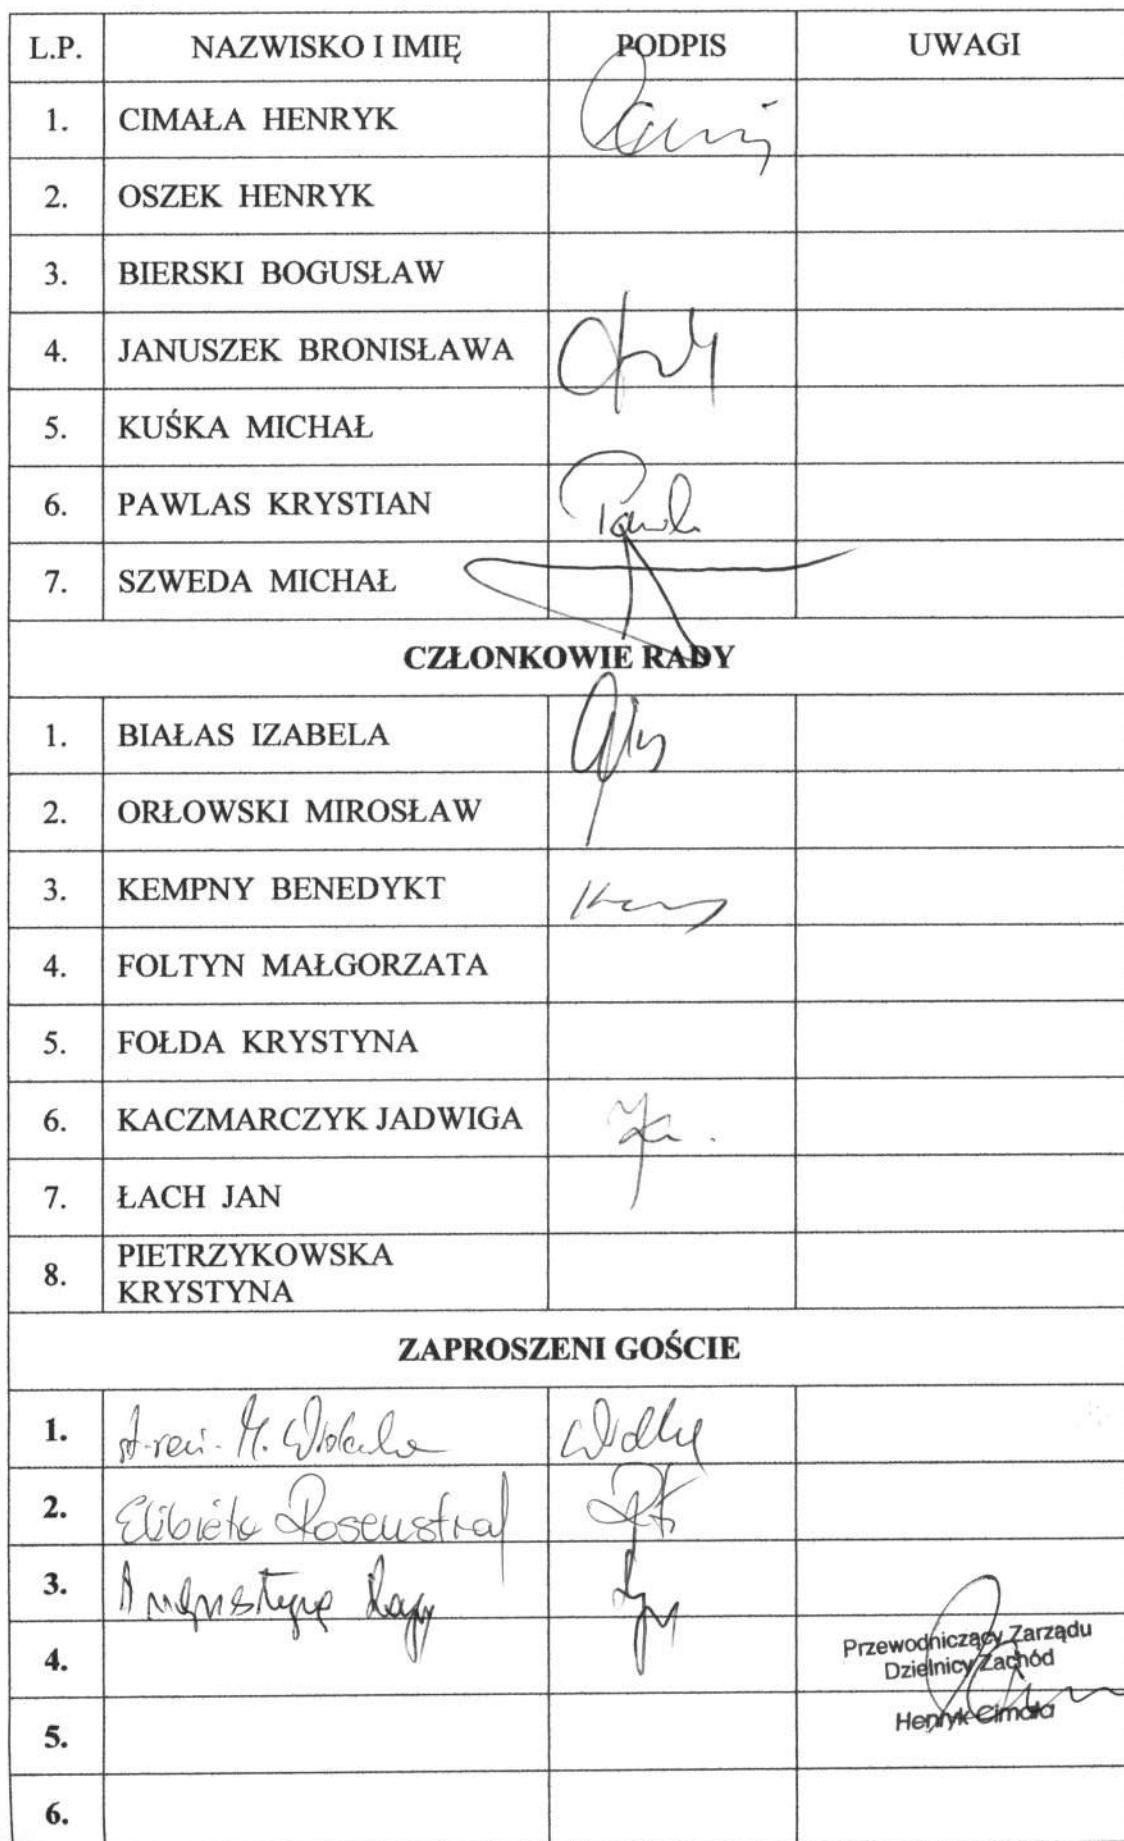 L.P. NAZWISKO I IMIĘ PODPIS UWAGI
1. CIMAŁA HENRYK
2. OSZEK HENRYK
3. BIERSKI BOGUSŁAW
4. JANUSZEK BRONISŁAWA
5. KUŚKA MICHAŁ
6. PAWLAS KRYSTIAN
7. SZWEDA MICHAŁ
CZŁONKOWIE RADY
1. BIAŁAS IZABELA
2. ORŁOWSKI MIROSŁAW
3. KEMPNY BENEDYKT
4. FOLTYN MAŁGORZATA
5. FOŁDA KRYSTYNA
6. KACZMARCZYK JADWIGA
7. ŁACH JAN
8. PIETRZYKOWSKA
KRYSTYNA
ZAPROSZENI GOŚCIE
1. M.
2. Elżbieta
3.
Przewodniczący Zarządu
Dzielnicy Zachód
4.
Henryk Cimała
5.
6.